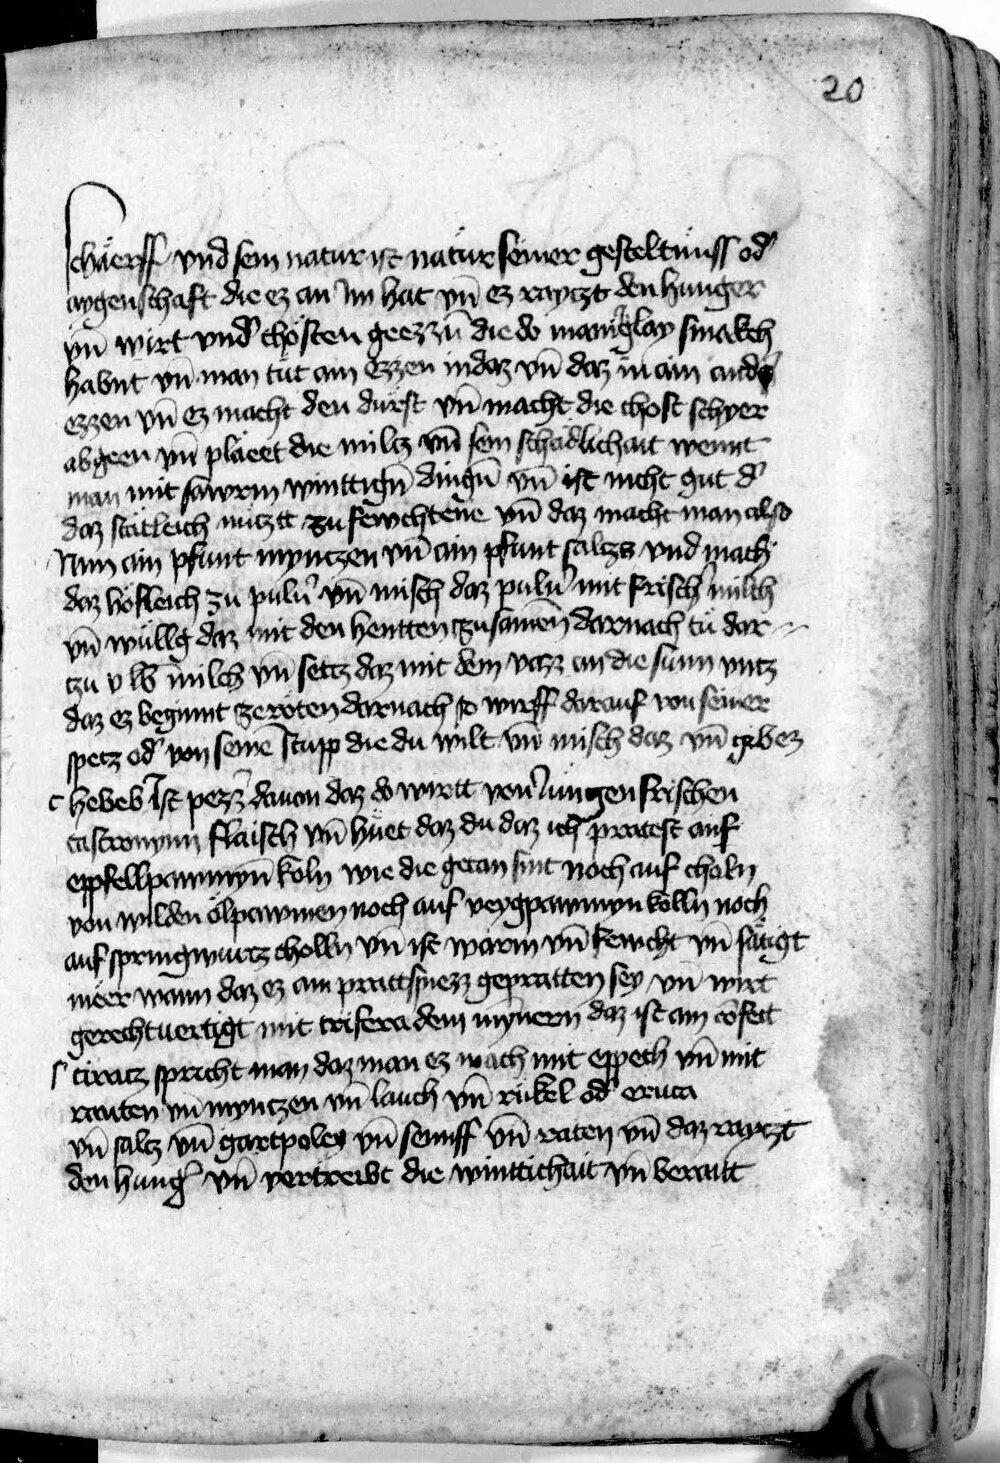 20
schäerff vnd sein natur ist natür seiner gesteltnüss od'
aygenschaft die ez an im hat vn̄ ez rayczt den hunger
vn̄ wirt vnd' chösten geezzn̄ die do maniglay smakch
habnt vn̄ man tüt ain ezzen in daz vn̄ daz in ain and'
ezzen vn̄ ez macht den durst vn̄ macht die chost schyer
abgeen vn̄ pläeet die milcz vn̄ sein schädlichait wennt
man mit sawrm winttign̄ dingn̄ vn̄ ist nicht gut d'
daz stätleich nütztt zu fewchtene vn̄ daz macht man also
Nim ain pfunt mynczen vn̄ ain pfunt salczs vnd mach
daz höfleich zu pulu' vn̄ misch daz pulu' mit frisch' milch
vn̄ wüllg daz mit den hentten zusamēn darnach tü dar
czu v lb milch vn̄ setcz daz mit dem vazz an die sunn vntz
daz ez begunnt ze röten darnach so wirff darauf von seiner
spetz od' von seinē stupp die du wilt vn̄ misch daz vn̄ gibez
c hebeb Ist pezz' dauon daz do wirtt von jungen frischen
castronynn flaisch vn̄ hüet daz du daz icht pratest auf
eppfellpawmyn̄ koln wie die getan sint noch auf choln
von wilden ölpawmen noch auf veygpawmyn kölln noch
auf springwurtz cholln vn̄ ist warm vn̄ fewcht vn̄ sätigt
meer wann daz ez am prattspiezz gepratten sey vn̄ wirt
gerechtuertigt mit trifera dem mynnern daz ist ain cōfect
s ciracz spricht man daz man ez mach mit eppech vn̄ mit
rauten vn̄ mynczen vn̄ lauch vn̄ rükel od' eruca
vn̄ salcz vn̄ gartpoley vn̄ senniff vn̄ raten vn̄ daz rayczt
den hung' vn̄ vertreibt die winttichait vn̄ beraitt